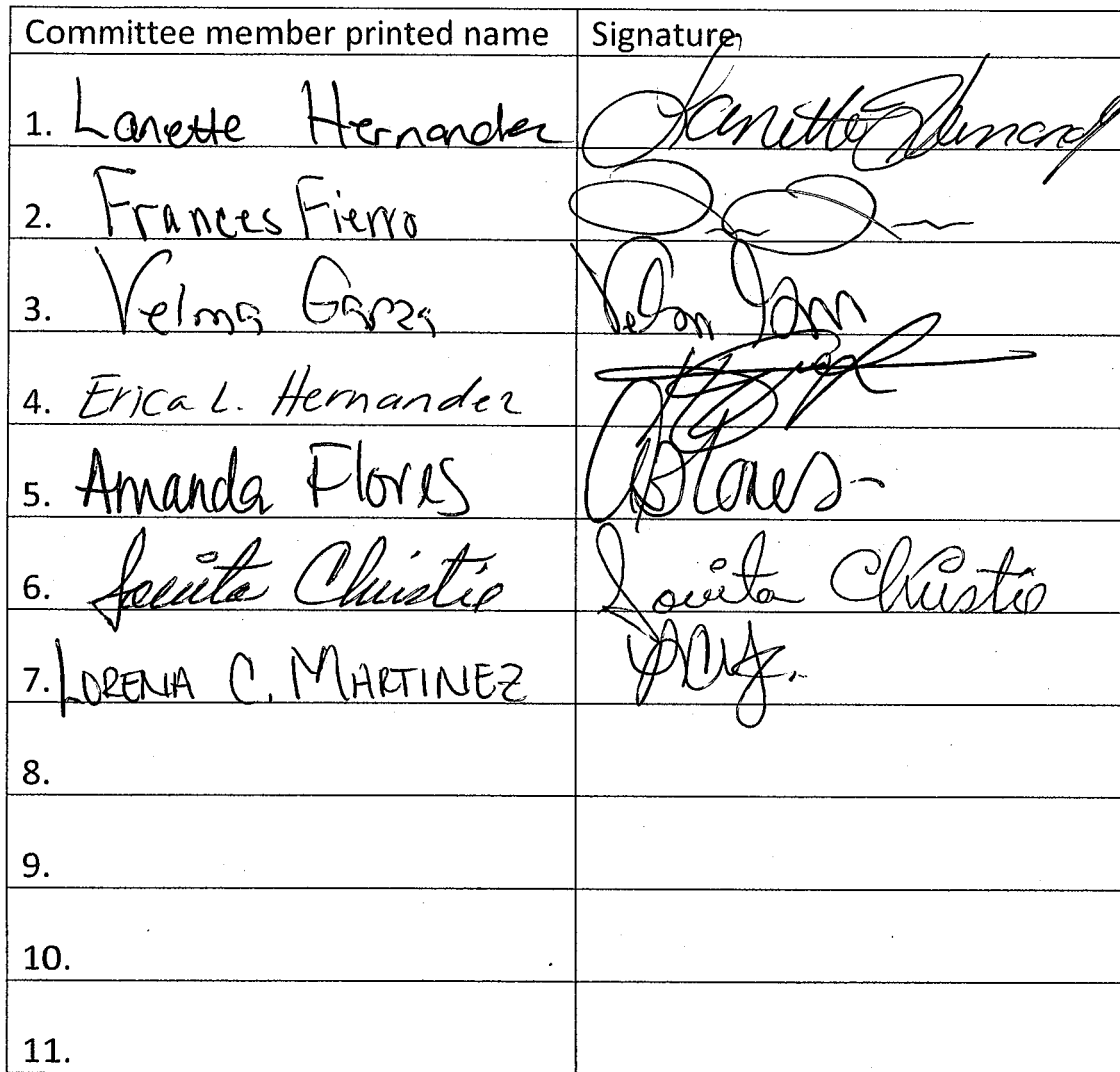 Committee member printed name Signature
1. Lanette Hernandez Lanette Hernand
2. Frances Fierro
3. Velma Garza
4. Erica L. Hernandez
5. Amanda Flores AFlores
6. Lovita Christie Lovita Christie
7. LORENA C. MARTINEZ
8.
9.
10.
11.